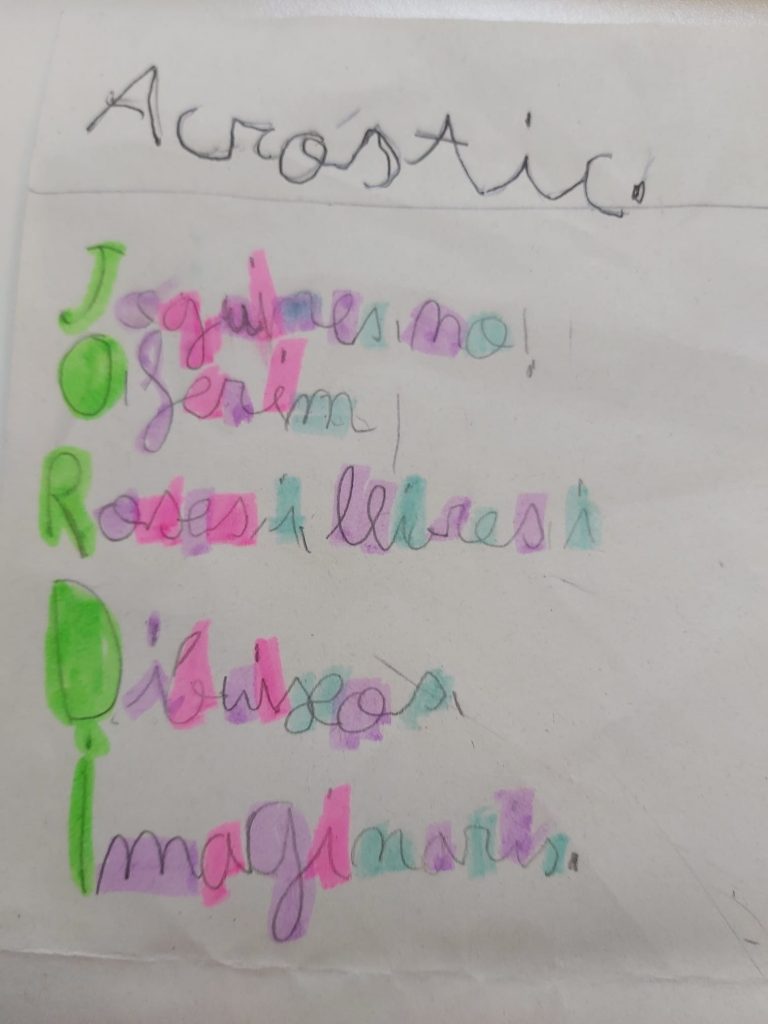 Acròstic.
Joguines, no!
Oferim
Roses i, llires i
Dibuixos,
Imaginaris.